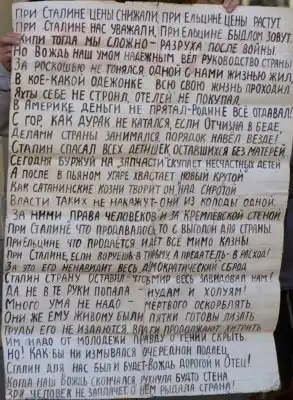 При Сталине цены снижали, при Ельцине цены растут
При Сталине нас уважали, при Ельцине быдлом зовут.
Жили тогда мы сложно - разруха после войны.
Но Вождь наш умом надежным вёл руководство страны
За роскошью не гонялся, одной с нами жизнью жил,
В кое-какой одежонке всю свою жизнь проходил
Яхты себе не строил, отелей не покупал
В Америке деньги не прятал - Родине всё отдавал!
С гор, как дурак не катался, если Отчизна в беде,
Делами страны занимался, порядок навёл везде!
Сталин спасал всех детишек оставшихся без матерей,
Сегодня буржуй на „запчасти" скупает несчастных детей
А после в пьяном угаре хвастает „новый крутой"
Как сатанинские козни творит он над сиротой
Власти таких не накажут - они из колоды одной.
За ними „права человеков" и за Кремлёвской стеной
При Сталине что продавалось то с выгодой для страны.
При Ельцине что продается идёт всё мимо казны
При Сталине, если воруешь в тюрьму, а предатель - в расход!
За это его ненавидит весь демократический сброд
Сталин страну оставил - что мир весь завидовал нам!
Да не в те руки попала - иудам и холуям!
Много ума не надо - мертвого оскорблять.
Они же ему живому были пятки готовы лизать
Труды его не издаются, враги продолжают хитрить
Им надо от молодежи правду о гении скрыть.
Но! Как-бы ни измывался очередной подлец,
Сталин для нас был и будет - Вождь дорогой и Отец!
Когда наш Вождь скончался, рухнула будто стена
Зря человек не заплачет о нём рыдала страна!